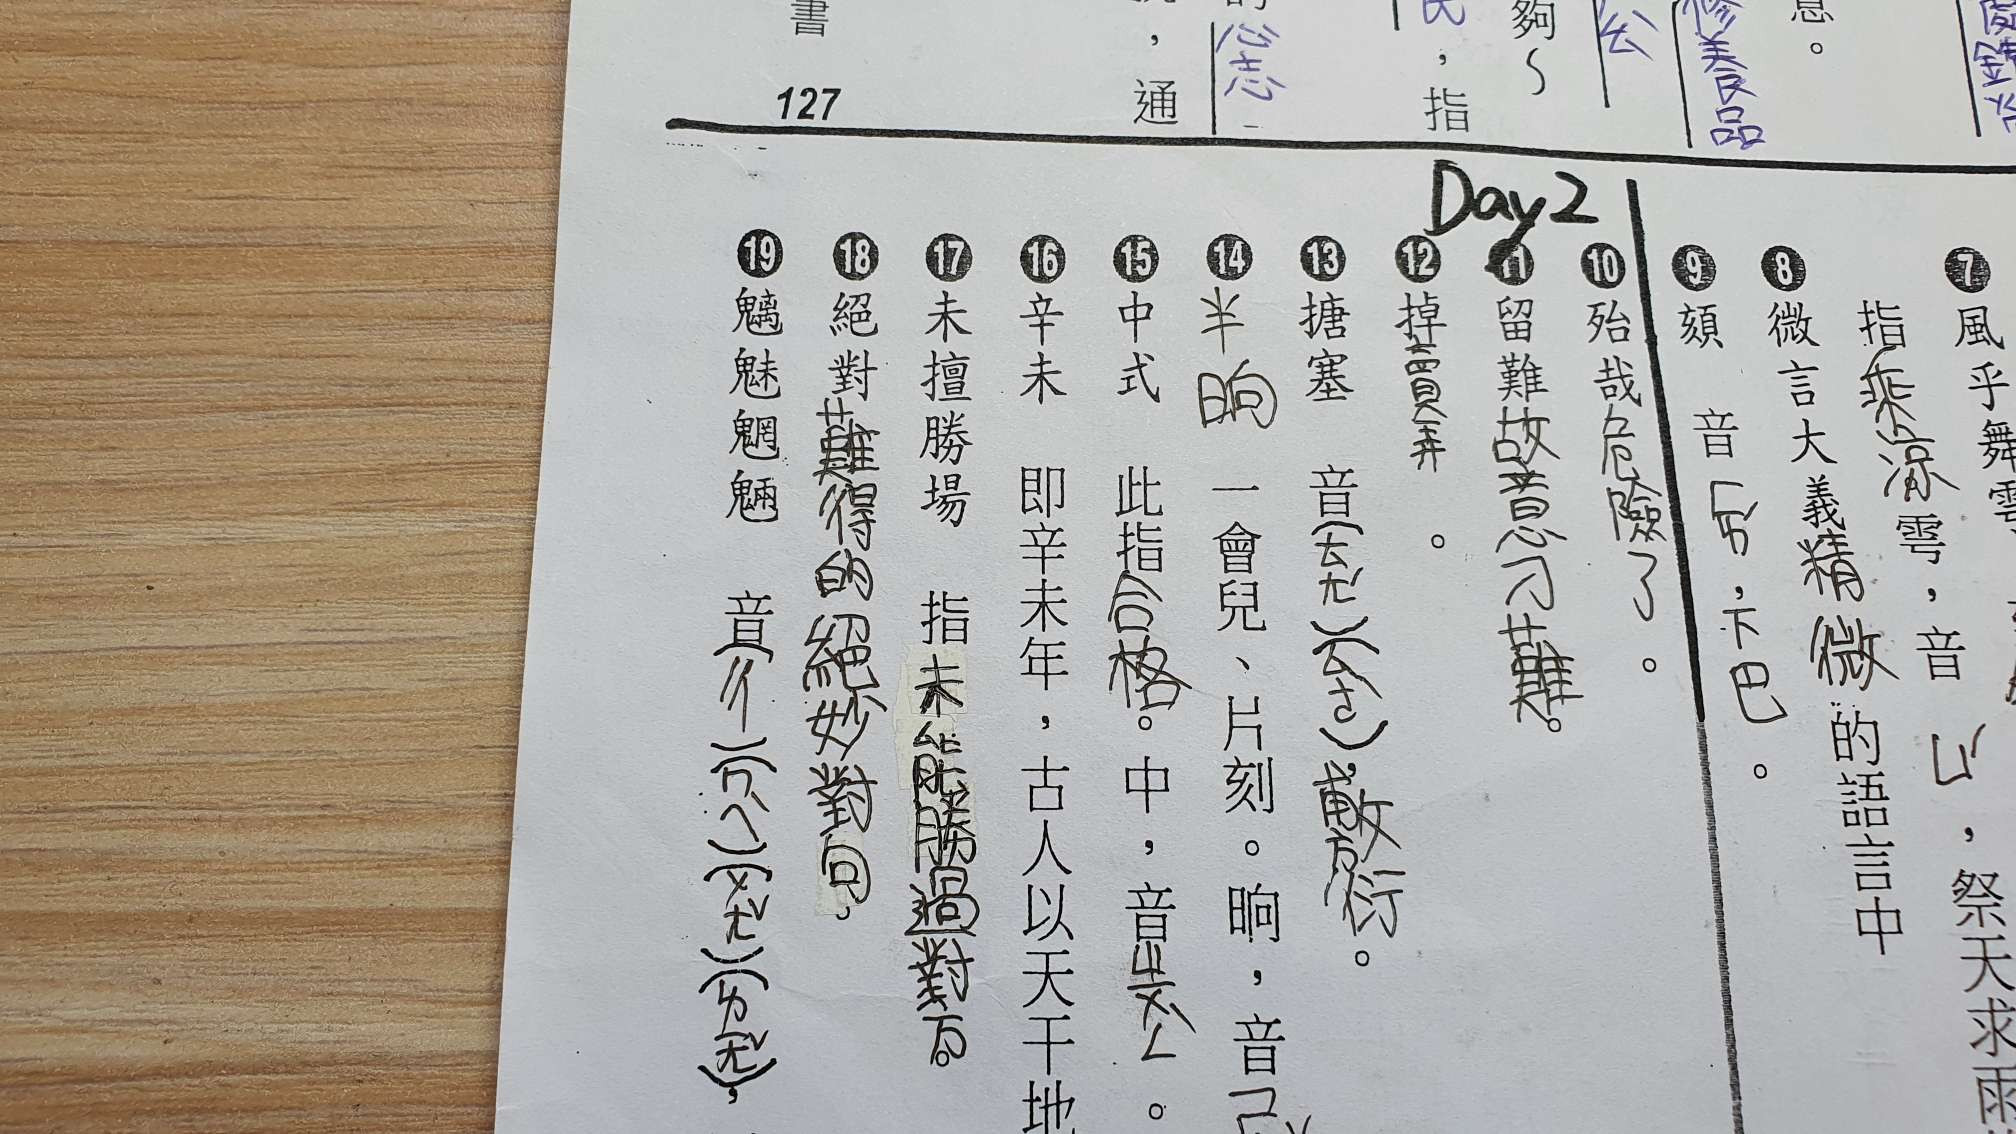 書
127
，通
心志
民，指
夠～
公
修養品
息。
Day2
7 風乎舞雩
指乘涼雩，音ㄩˊ，祭天求雨
8 微言大義精微的語言中
9 頦 音ㄏㄞˊ，下巴。
10 殆哉危險了。
11 留難故意刁難。
12 掉賣弄。
13 搪塞 音(ㄊㄤˊ)(ㄙㄜˋ)，敷衍。
14 半晌 一會兒、片刻。晌，音
15 中式 此指合格。中，音ㄓㄨㄥˋ。
16 辛未 即辛未年，古人以天干地
17 未擅勝場 指未能勝過對方。
18 絕對難得的絕妙對句。
19 魑魅魍魎 音(ㄔ)(ㄇㄟˋ)(ㄨㄤˇ)(ㄌㄧㄤˇ)，